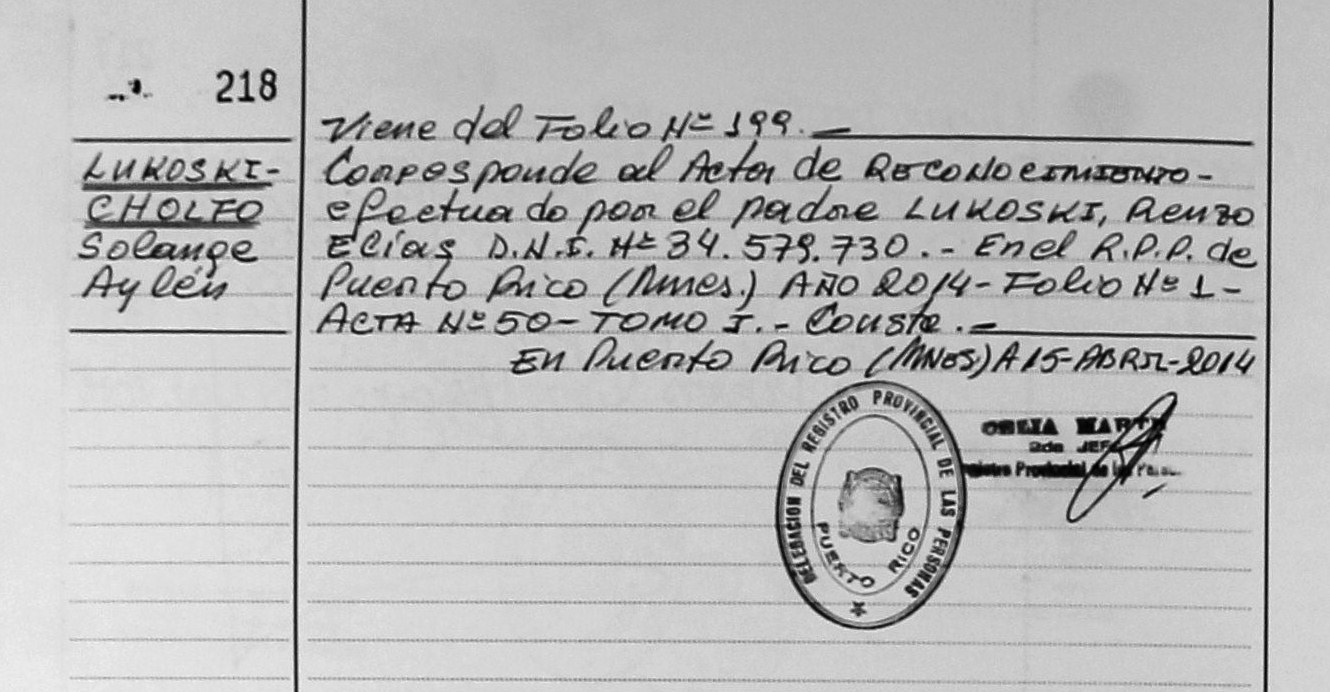 218
Viene del Folio Nº 199.-
LUKOSKI-
CHOLFO
Solange
Aylén
Corresponde al Acta de RECONOCIMIENTO-
efectuado por el padre LUKOSKI, Renzo
Elías D.N.I. Nº 34.579.730.- En el R.P.P. de
Puerto Rico (Mnes.) AÑO 2014- Folio Nº 1-
ACTA Nº 50- TOMO I.- Conste.-
En Puerto Rico (MNES) A 15-ABRIL-2014
DELEGACION DEL REGISTRO PROVINCIAL DE LAS PERSONAS
PUERTO RICO
2da JEF
Provincial de las